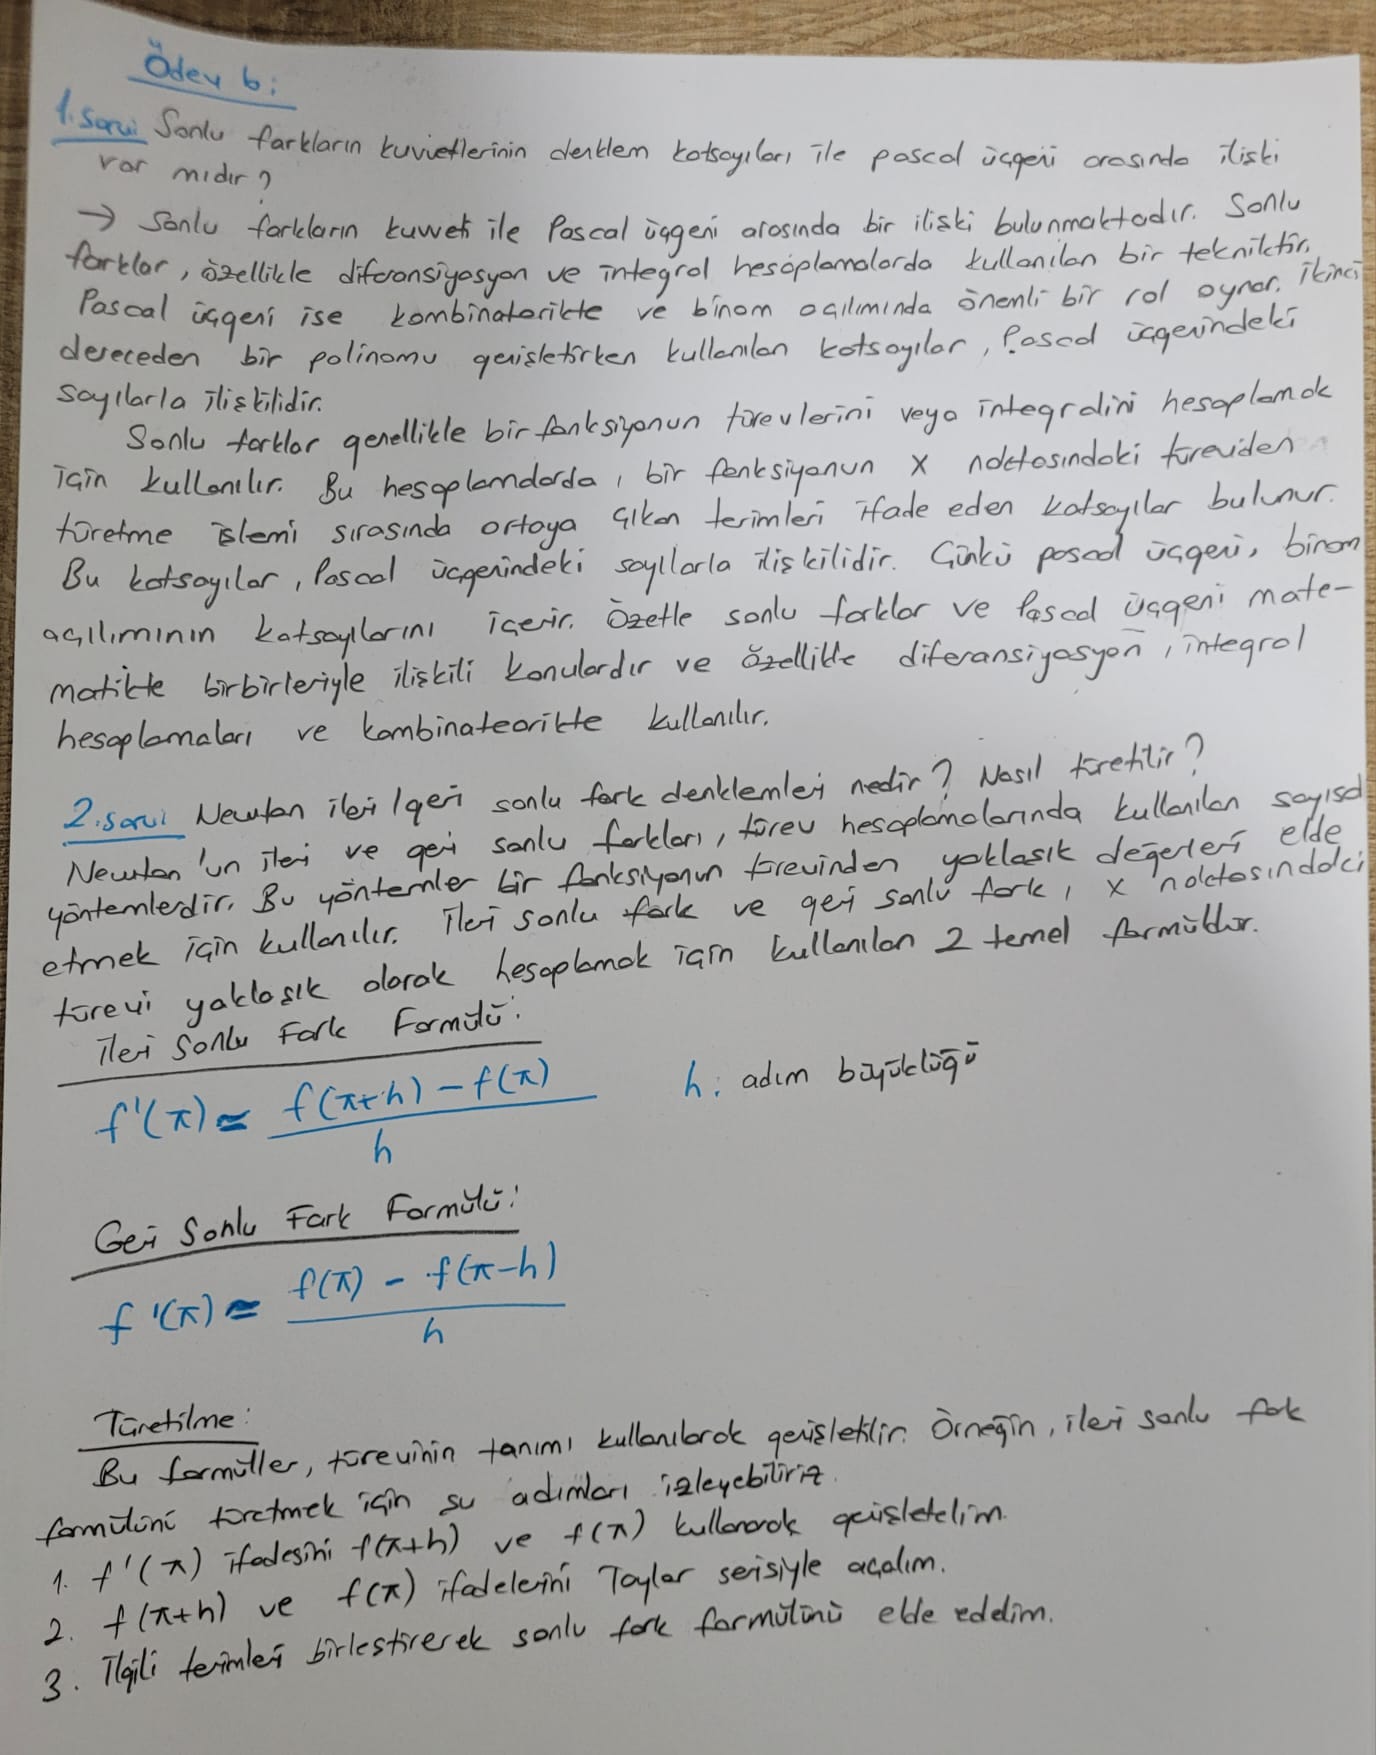 Ödev 6:
1.soru Sonlu farkların kuvvetlerinin denklem katsayıları ile pascal üçgeni arasında ilişki
var mıdır?
→ Sonlu farkların kuvveti ile Pascal üçgeni arasında bir ilişki bulunmaktadır. Sonlu
farklar, özellikle diferansiyasyon ve integral hesaplamalarda kullanılan bir tekniktir.
Pascal üçgeni ise kombinatorikte ve binom açılımında önemli bir rol oynar. İkinci
dereceden bir polinomu genişletirken kullanılan katsayılar, Pascal üçgenindeki
sayılarla ilişkilidir.
Sonlu farklar genellikle bir fonksiyonun türevlerini veya integralini hesaplamak
için kullanılır. Bu hesaplamalarda, bir fonksiyonun x noktasındaki türeviden
türetme işlemi sırasında ortaya çıkan terimleri ifade eden katsayılar bulunur.
Bu katsayılar, Pascal üçgenindeki sayılarla ilişkilidir. Çünkü pascal üçgeni, binom
açılımının katsayılarını içerir. Özetle sonlu farklar ve Pascal üçgeni mate-
matikte birbirleriyle ilişkili konulardır ve özellikle diferansiyasyon, integral
hesaplamaları ve kombinateorikte kullanılır.
2.soru Newton ileri/geri sonlu fark denklemleri nedir? Nasıl türetilir?
Newton'un ileri ve geri sonlu farkları, türev hesaplamalarında kullanılan sayısal
yöntemlerdir. Bu yöntemler bir fonksiyonun türevinden yaklaşık değerleri elde
etmek için kullanılır. İleri sonlu fark ve geri sonlu fark, x noktasındaki
türevi yaklaşık olarak hesaplamak için kullanılan 2 temel formüldür.
İleri Sonlu Fark Formülü:
f'(x) ≃ f(x+h) - f(x) / h   h: adım büyüklüğü
Geri Sonlu Fark Formülü:
f'(x) ≃ f(x) - f(x-h) / h
Türetilme:
Bu formüller, türevinin tanımı kullanılarak genişletilir. Örneğin, ileri sonlu fark
formülünü türetmek için şu adımları izleyebiliriz.
1. f'(x) ifadesini f(x+h) ve f(x) kullanarak genişletelim.
2. f(x+h) ve f(x) ifadelerini Taylor serisiyle açalım.
3. İlgili terimleri birleştirerek sonlu fark formülünü elde edelim.